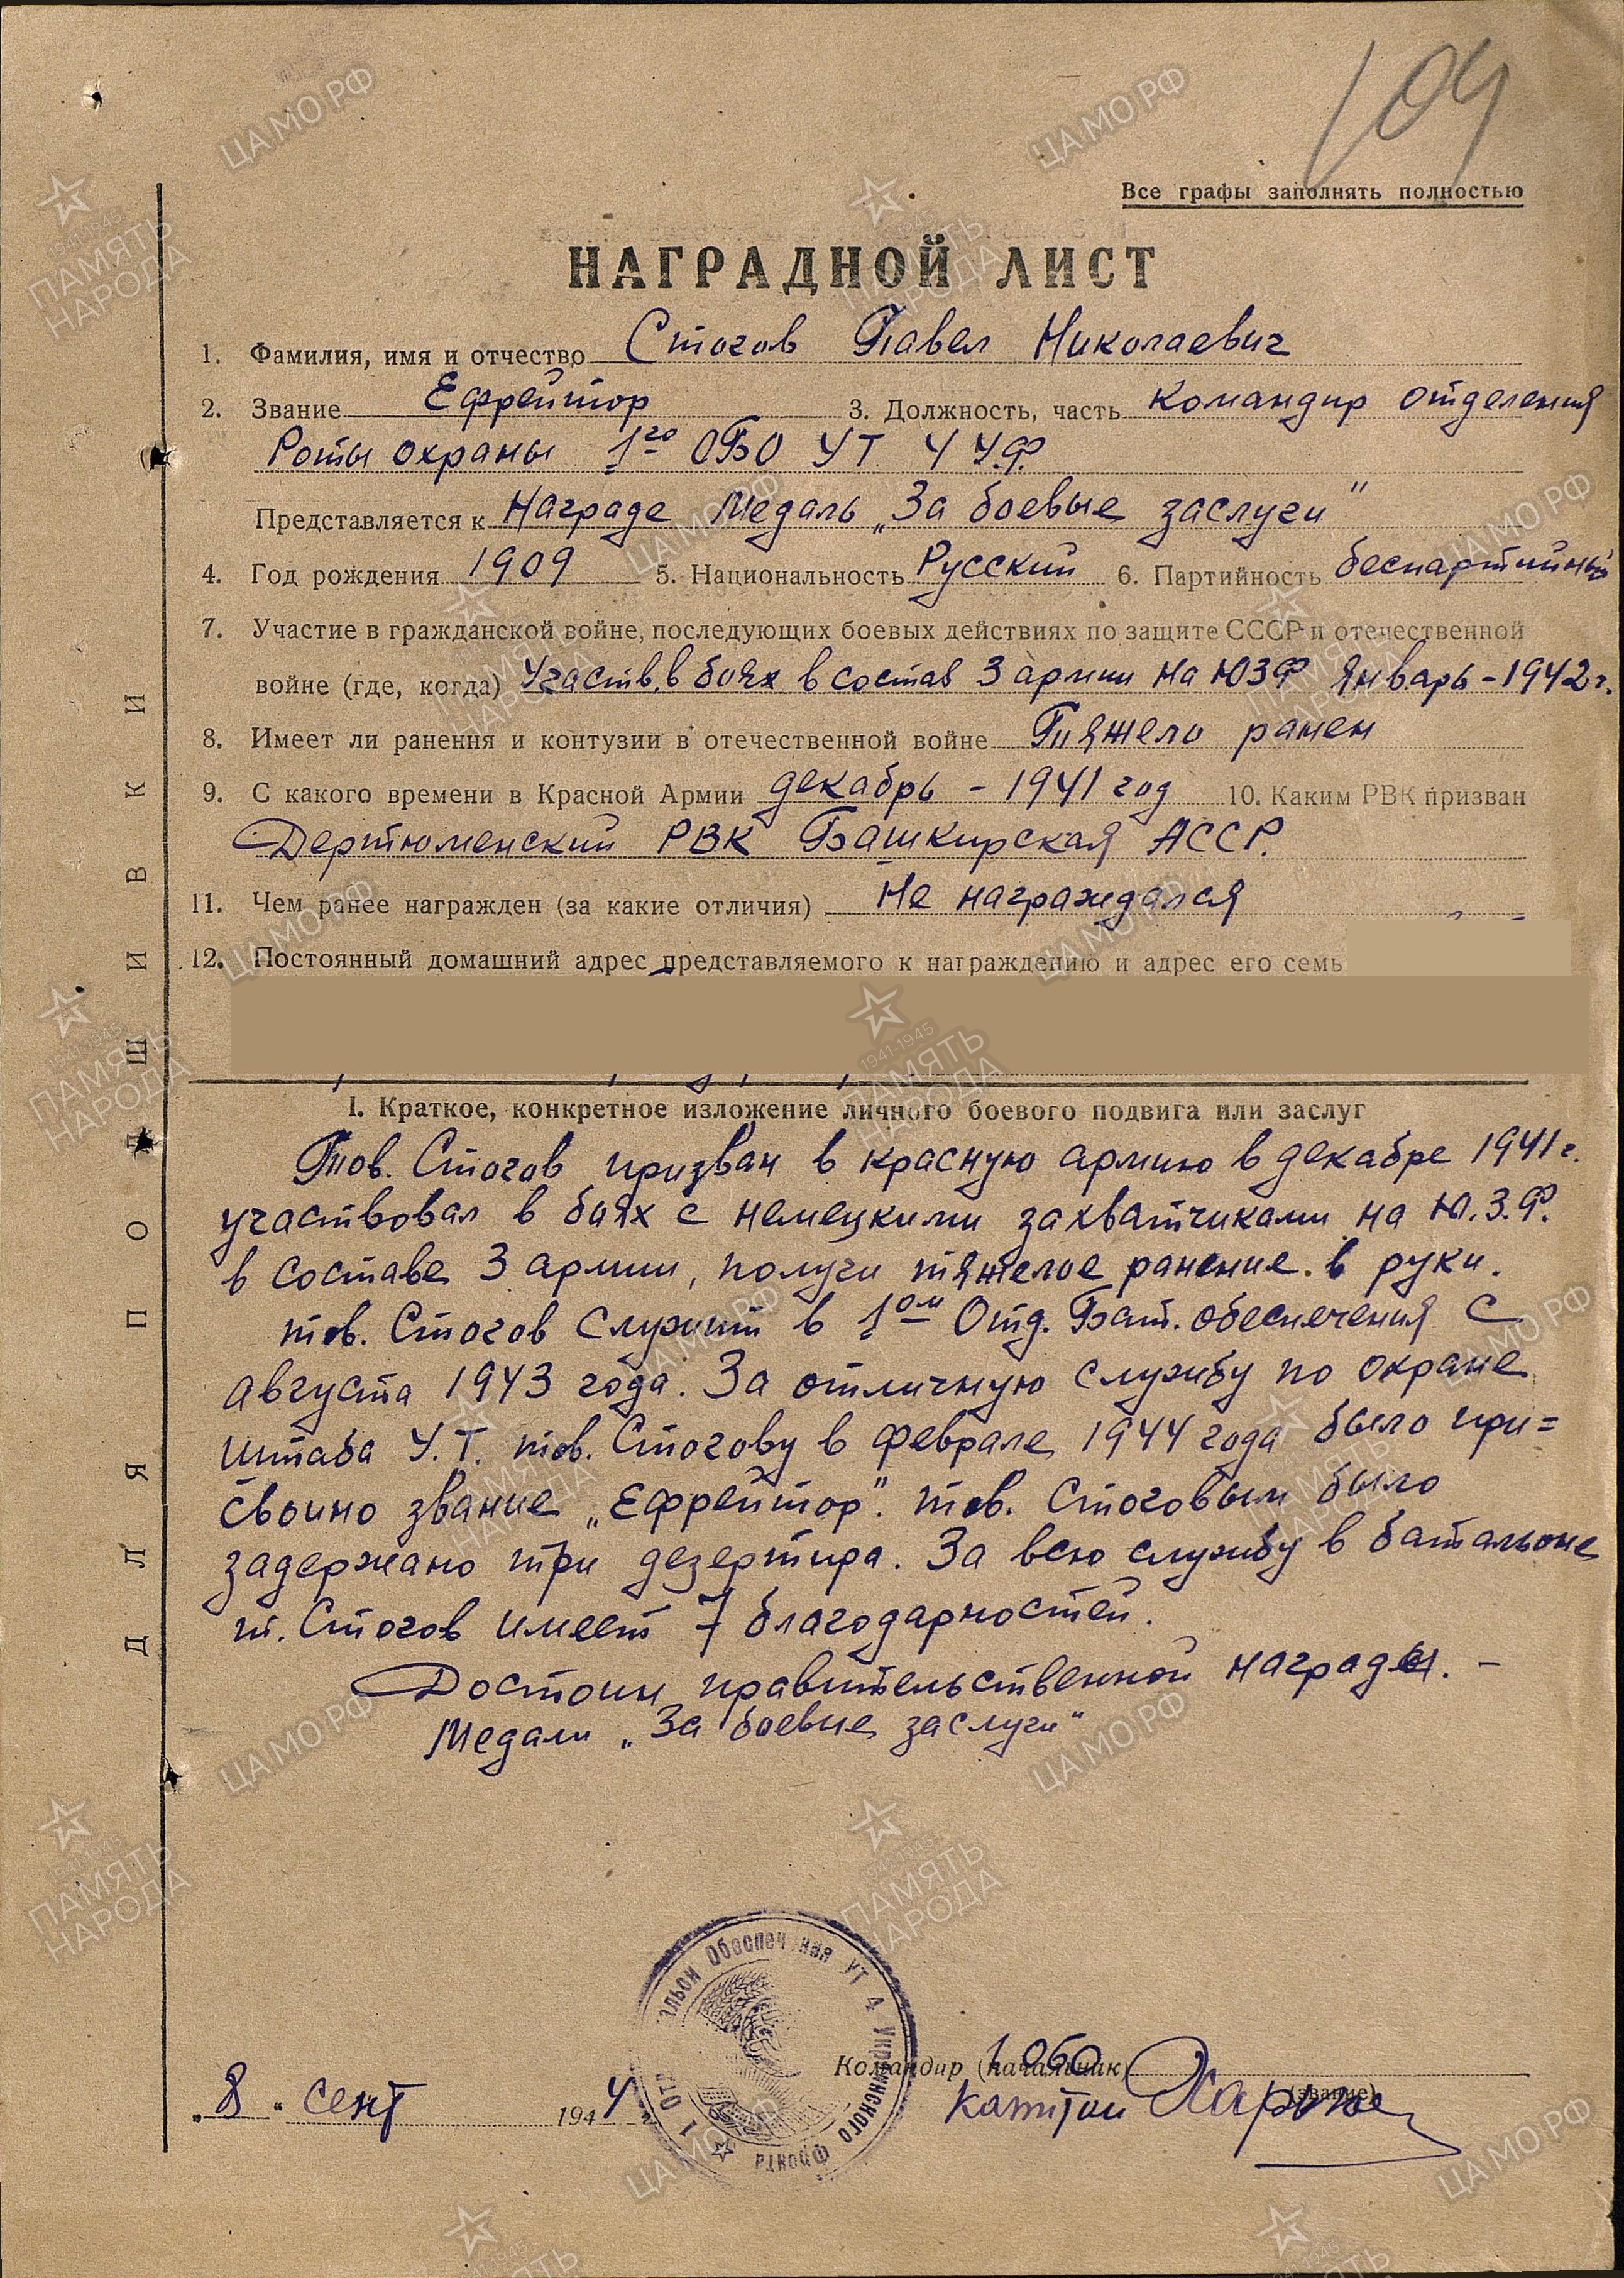 104
Все графы заполнять полностью
НАГРАДНОЙ ЛИСТ
1. Фамилия, имя и отчество Стогов Павел Николаевич
2. Звание Ефрейтор 3. Должность, часть командир отделения
Роты охраны 1го ОБО УТ 4 У.Ф.
Представляется к Награде Медаль „За боевые заслуги"
4. Год рождения 1909 5. Национальность Русский 6. Партийность беспартийный
7. Участие в гражданской войне, последующих боевых действиях по защите СССР и отечественной
войне (где, когда) Участв. в боях в состав 3 армии на ЮЗФ январь - 1942 г.
8. Имеет ли ранения и контузии в отечественной войне Тяжело ранен
9. С какого времени в Красной Армии декабрь - 1941 год 10. Каким РВК призван
Дертюменский РВК Башкирская АССР.
11. Чем ранее награжден (за какие отличия) Не награждался
12. Постоянный домашний адрес представляемого к награждению и адрес его семь
I. Краткое, конкретное изложение личного боевого подвига или заслуг
Тов. Стогов призван в красную армию в декабре 1941 г.
участвовал в боях с немецкими захватчиками на Ю.З.Ф.
в составе 3 армии, получи тяжелое ранение в руки.
тов. Стогов служит в 1ом Отд. Бат. обеспечения с
августа 1943 года. За отличную службу по охране
штаба У.Т. тов. Стогову в феврале 1944 года было при=
своино звание „Ефрейтор". тов. Стоговым было
задержано три дезертира. За всю службу в батальоне
т. Стогов имеет 7 благодарностей.
Достоин правительственной награды. -
Медали „За боевые заслуги"
1 ОТД альон Обеспеч ния УТ 4 Украинского Фронта
Командир (начальник) 1 ОБО
(звание)
капитан
„8" сент 1944
ДЛЯ ПОДШИВКИ
ЦАМО РФ
1941-1945
ПАМЯТЬ
НАРОДА